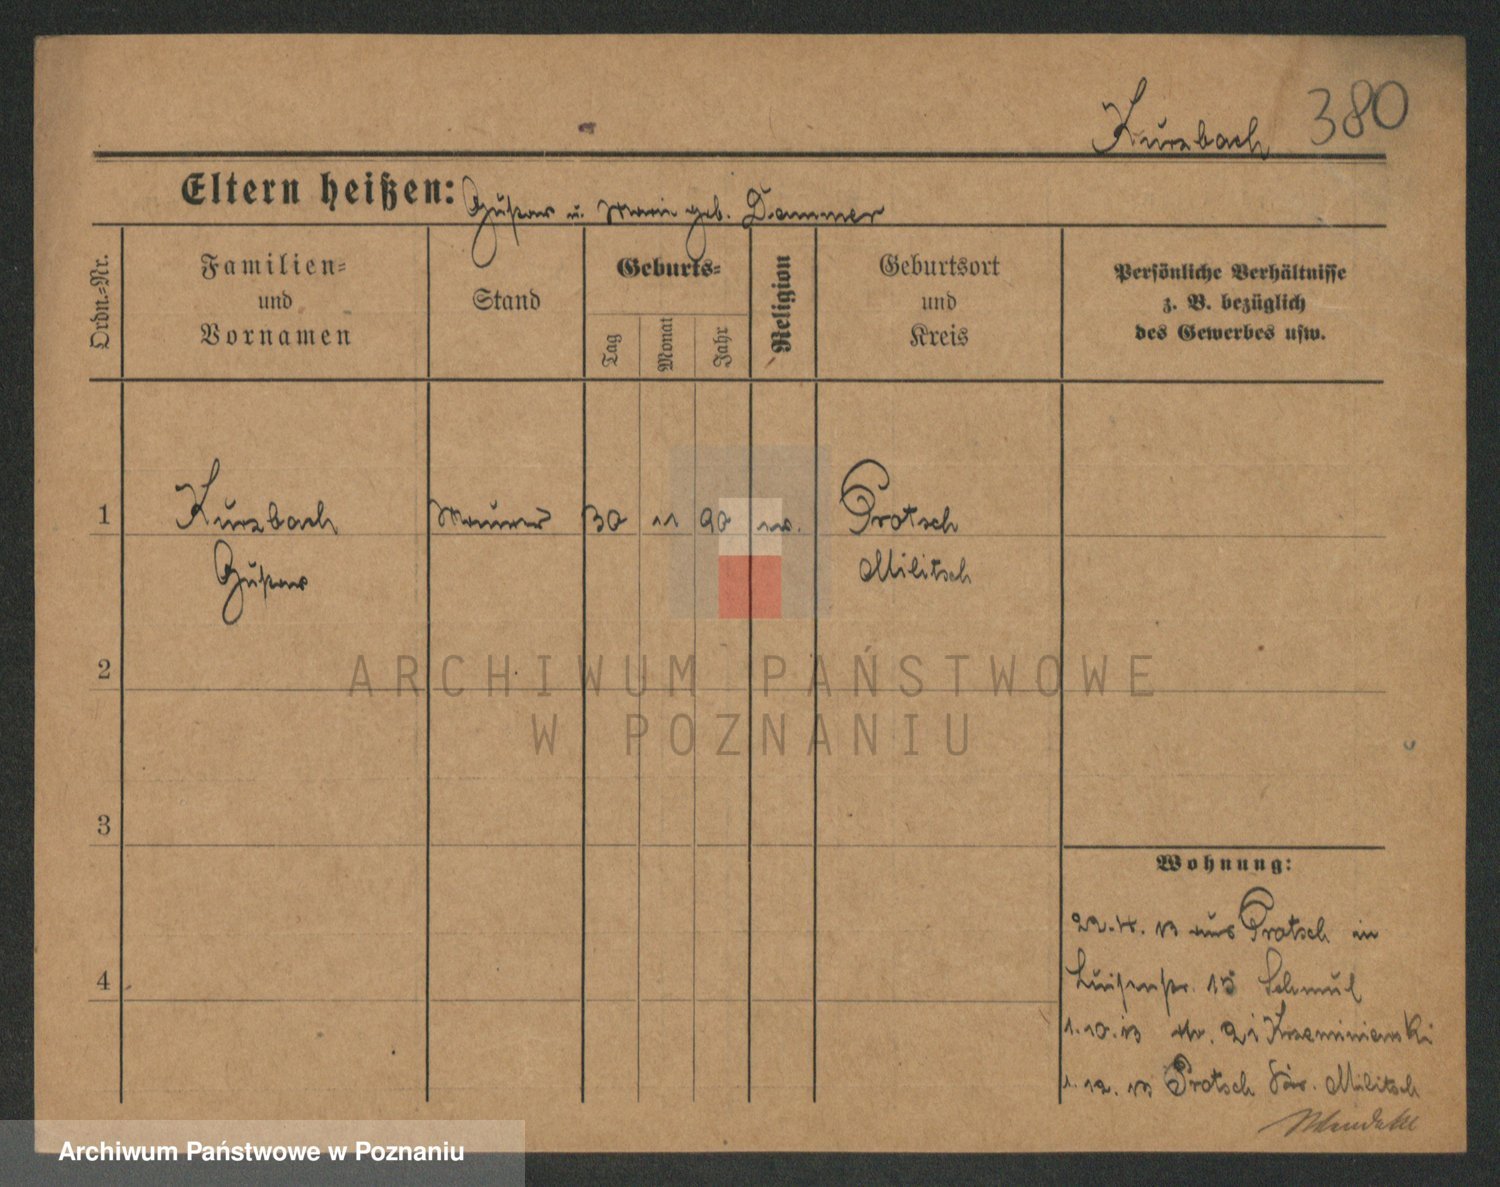 Kurzbach 380
Eltern heißen: Gustav u. Marie geb. Dammer
Ordn.-Nr.
Familien-
und
Vornamen
Stand
Geburts-
Tag
Monat
Jahr
Religion
Geburtsort
und
Kreis
Persönliche Verhältnisse
z. B. bezüglich
des Gewerbes usw.
1 Kurzbach Maurer 30 11 90 ev. Protsch
Gustav Militsch
2
3
4
Wohnung:
22. 4. 13 aus Protsch in
Luisenstr. 15 Schmul
1.10.13 Nr. 21 Krzeminiewski
1. 12. 13 Protsch Kr. Militsch
ARCHIWUM PAŃSTWOWE
W POZNANIU
Archiwum Państwowe w Poznaniu